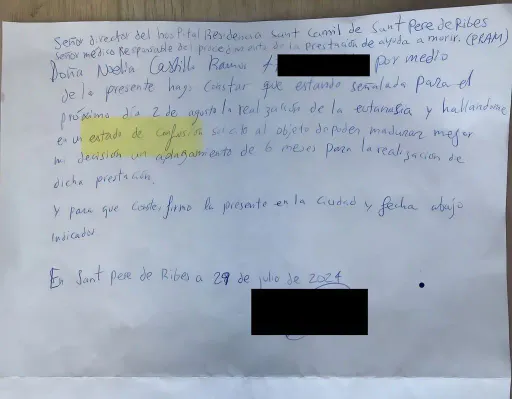 Señor director del hospital Residencia Sant Camil de Sant Pere de Ribes
Señor médico Responsable del procedimiento de la prestación de ayuda a morir. (PRAM)
Doña Noelia Castillo Ramos por medio
de la presente hago constar que estando señalada para el
próximo día 2 de agosto la realización de la eutanasia y hallandome
en un estado de confusión solicito al objeto de poder madurar mejor
mi decisión un aplazamiento de 6 meses para la realización de
dicha prestación.
Y para que conste, firmo la presente en la ciudad y fecha abajo
indicador.
En Sant Pere de Ribes a 29 de julio de 2024